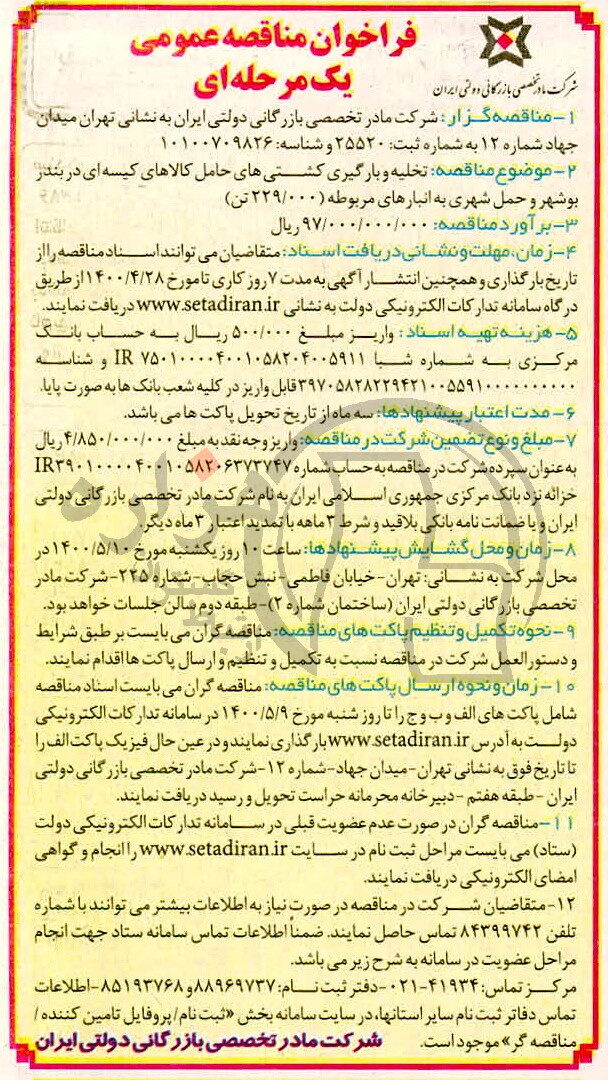 فراخوان مناقصه عمومی
یک مرحله‌ای
شرکت مادر تخصصی بازرگانی دولتی ایران
۱-مناقصه‌گزار: شرکت مادر تخصصی بازرگانی دولتی ایران به نشانی تهران میدان
جهاد شماره ۱۲ به شماره ثبت: ۲۵۵۲۰ و شناسه: ۱۰۱۰۰۷۰۹۸۲۶
۲-موضوع مناقصه: تخلیه و بارگیری کشتی‌های حامل کالاهای کیسه‌ای در بندر
بوشهر و حمل شهری به انبارهای مربوطه (۲۲۹/۰۰۰ تن)
۳-برآورد مناقصه: ۹۷/۰۰۰/۰۰۰/۰۰۰ ریال
۴-زمان، مهلت و نشانی دریافت اسناد: متقاضیان می توانند اسناد مناقصه را از
تاریخ بارگذاری و همچنین انتشار آگهی به مدت ۷ روز کاری تا مورخ ۱۴۰۰/۴/۲۸ از طریق
درگاه سامانه تدارکات الکترونیکی دولت به نشانی www.setadiran.ir دریافت نمایند.
۵-هزینه تهیه اسناد: واریز مبلغ ۵۰۰/۰۰۰ ریال به حساب بانک
مرکزی به شماره شبا IR ۷۵۰۱۰۰۰۰۴۰۰۱۰۵۸۲۰۴۰۰۵۹۱۱ و شناسه
۳۹۷۰۵۸۲۸۲۲۹۴۲۱۰۰۵۵۹۱۰۰۰۰۰۰۰۰۰۰ قابل واریز در کلیه شعب بانک ها به صورت پایا.
۶-مدت اعتبار پیشنهادها: سه ماه از تاریخ تحویل پاکت ها می باشد.
۷-مبلغ و نوع تضمین شرکت در مناقصه: واریز وجه نقد به مبلغ ۴/۸۵۰/۰۰۰/۰۰۰ ریال
به عنوان سپرده شرکت در مناقصه به حساب شماره IR۳۹۰۱۰۰۰۰۴۰۰۱۰۵۸۲۰۶۳۷۳۷۴۷
خزانه نزد بانک مرکزی جمهوری اسلامی ایران به نام شرکت مادر تخصصی بازرگانی دولتی
ایران و یا ضمانت نامه بانکی بلاقید و شرط ۳ ماهه با تمدید اعتبار ۳ ماه دیگر.
۸-زمان و محل گشایش پیشنهادها: ساعت ۱۰ روز یکشنبه مورخ ۱۴۰۰/۵/۱۰ در
محل شرکت به نشانی: تهران-خیابان فاطمی-نبش حجاب-شماره ۲۲۵-شرکت مادر
تخصصی بازرگانی دولتی ایران (ساختمان شماره ۲)-طبقه دوم سالن جلسات خواهد بود.
۹-نحوه تکمیل و تنظیم پاکت های مناقصه: مناقصه گران می بایست بر طبق شرایط
و دستورالعمل شرکت در مناقصه نسبت به تکمیل و تنظیم و ارسال پاکت ها اقدام نمایند.
۱۰-زمان و نحوه ارسال پاکت های مناقصه: مناقصه گران می بایست اسناد مناقصه
شامل پاکت های الف و ب و ج را تا روز شنبه مورخ ۱۴۰۰/۵/۹ در سامانه تدارکات الکترونیکی
دولت به آدرس www.setadiran.ir بارگذاری نمایند و در عین حال فیزیک پاکت الف را
تا تاریخ فوق به نشانی تهران-میدان جهاد-شماره ۱۲-شرکت مادر تخصصی بازرگانی دولتی
ایران -طبقه هفتم -دبیرخانه محرمانه حراست تحویل و رسید دریافت نمایند.
۱۱-مناقصه گران در صورت عدم عضویت قبلی در سامانه تدارکات الکترونیکی دولت
(ستاد) می بایست مراحل ثبت نام در سایت www.setadiran.ir را انجام و گواهی
امضای الکترونیکی دریافت نمایند.
۱۲-متقاضیان شرکت در مناقصه در صورت نیاز به اطلاعات بیشتر می توانند با شماره
تلفن ۸۴۳۹۹۷۴۲ تماس حاصل نمایند. ضمناً اطلاعات تماس سامانه ستاد جهت انجام
مراحل عضویت در سامانه به شرح زیر می باشد.
مرکز تماس: ۴۱۹۳۴-۰۲۱-دفتر ثبت نام: ۸۸۹۶۹۷۳۷ و ۸۵۱۹۳۷۶۸-اطلاعات
تماس دفاتر ثبت نام سایر استانها، در سایت سامانه بخش «ثبت نام/پروفایل تامین کننده/
مناقصه گر» موجود است.
شرکت مادر تخصصی بازرگانی دولتی ایران